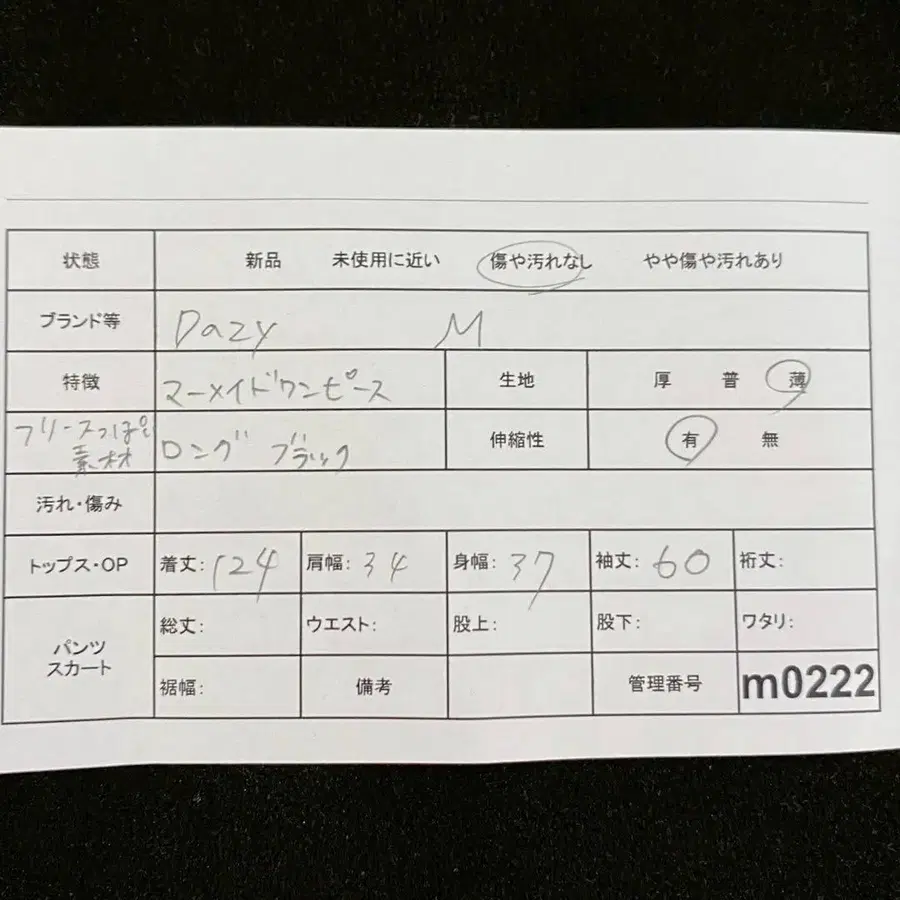 状態 新品 未使用に近い 傷や汚れなし やや傷や汚れあり
ブランド等 Dazy M
特徴 マーメイドワンピース 生地 厚 普 薄
フリースっぽい素材 ロング ブラック 伸縮性 有 無
汚れ・傷み
トップス・OP 着丈: 124 肩幅: 34 身幅: 37 袖丈: 60 裄丈:
パンツ スカート 総丈: ウエスト: 股上: 股下: ワタリ:
裾幅: 備考 管理番号 m0222